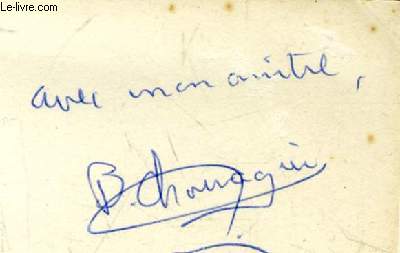 © Le-livre.com
avec mon amitié,
B. Chouragui